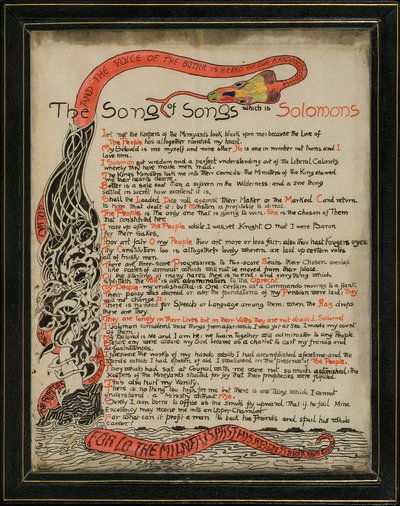 AND THE VOICE OF THE BOTHA IS HEARD ON OUR RAND
The Song of Songs which is Solomons
Let not the Keepers of the Moneybags look black upon me because the love of
The People has altogether ravished my heart.
My Beloved is me myself and none other He is one in number not twins and I
love him.
I Solomon got wisdom and a perfect understanding out of the Liberal Cabinets
whereby they have made men mad.
The Kings Ministers took me into their counsels: the Ministers of the King showed
me their hearts desire.
Better is a safe seat than a sojourn in the Wilderness and a sure thing
settled in secret how excellent it is.
Shall the Loaded Dice roll against their Maker or the Marked Card return
to him that dealt it; but Wisdom is profitable to direct.
The People is the only one that is going to win: She is the chosen of Them
that constituted her.
I rose up after The People while I was yet Knight O that I were Baron
for their sakes.
Thou art fair O my People thou art more or less fair: also thou hast fingers eyes.
Thy Constitution too is altogether lovely wherein are laid up certain votes
as of frisky men.
There are three-score Progressives to five-score Seats: their Chosen overlap
like scales of armour which will not be moved from their place.
Of the splitting of many hairs there is no end: and everything which
splitteth the Vote is an abomination to the
O People my undefiled is One: certain of a Commando moving to a flank.
Their Policy was devised or ever the foundations of my Persuasion were laid: They
will not change it:
There is no need for Speech or Language among Them: when the Rag drops
there are They.
They are lovely in Their Lives but in their Votes They are not divided, Selah
I Solomon considered these things from afar while I was yet at sea: I made my count
of them.
My Beloved is Me and I am he: we twain together will administer a my People.
Before ever I was aware my Soul became as a chariot to cart my friends and
acquaintances.
I the works of my hands which I had accomplished aforetime and the
words which I had spoken of old I swallowed in the Presence of The People.
They which had sat at Council with me were not so much astonished: the
Keepers of the Moneybags shouted for joy that their prophecies were fulfilled.
This also hurt my Vanity.
There is nothing too high for me but there is one Thing which I cannot
understand: a Ministry without Me.
Surely I am borne to office as the smuts fly upward that if he fail Mine
Excellency may receive me into an Upper Chamber
For what can it profit a man to back his Friends and spoil his whole
Career.
FOR LO THE MILNER IS PAST HIS REIGN IS OVER AND GONE